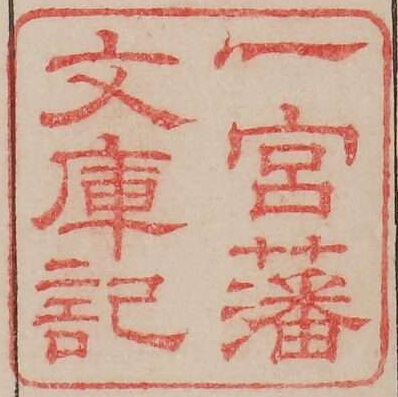 一宮藩
文庫記